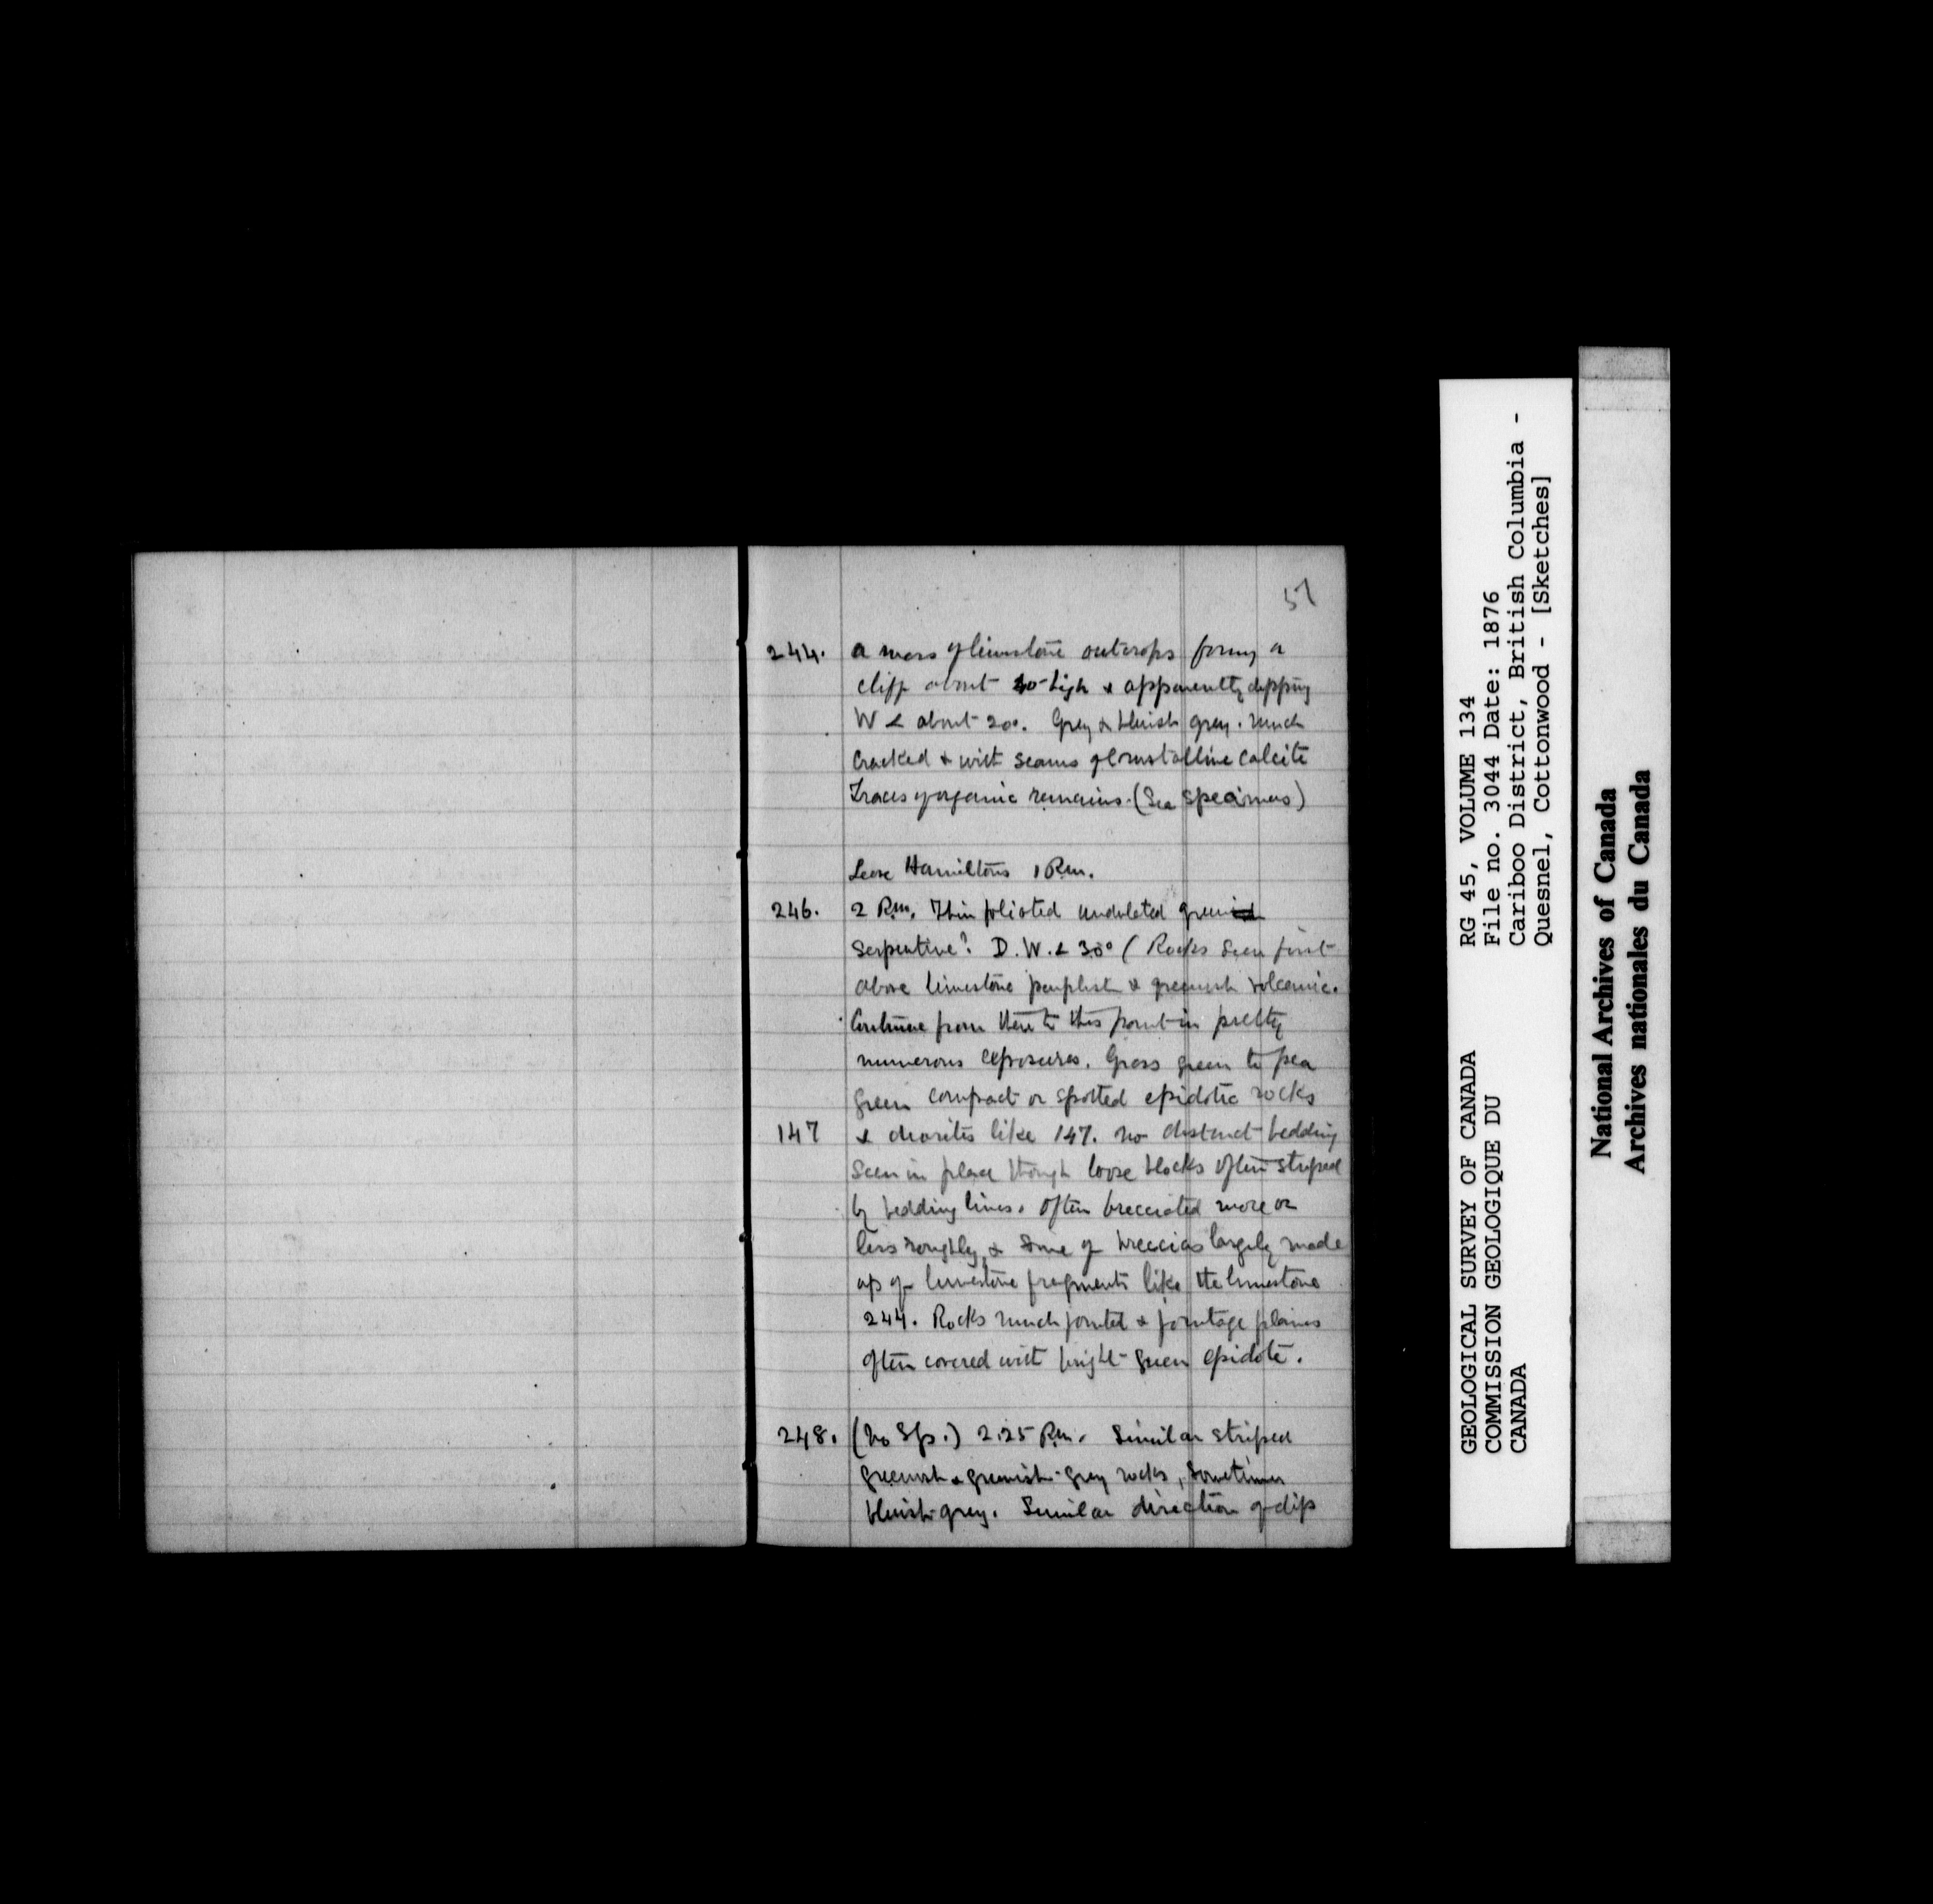 57
244. a mass of limestone outcrops formg a
cliff about 40 high & apparently dipping
W < about 20°. Grey & bluish grey. Much
cracked & with seams of crystalline calcite
Traces of organic remains. (See specimens)
Leave Hamiltons 1 P.m.
246. 2 P.m. Thin foliated undulated green
Serpentine? D. W. < 30° (Rocks seen first
above limestone purplish & greenish volcanic.
Continue from there to this point in pretty
numerous exposures. Grass green to pea
green compact or spotted epidotic rocks
147 & diorites like 147. no distinct bedding
seen in place though loose blocks often striped
by bedding lines. Often brecciated more or
less roughly, & some of breccias largely made
up of limestone fragments like the limestone
244. Rocks much jointed & jointage planes
often covered with bright green epidote.
248. (No Sp.) 2.25 P.m. Similar striped
greenish & greenish-grey rocks, sometimes
bluish-grey. Similar direction of dip
GEOLOGICAL SURVEY OF CANADA
COMMISSION GEOLOGIQUE DU
CANADA
RG 45, VOLUME 134
File no. 3044 Date: 1876
Cariboo District, British Columbia -
Quesnel, Cottonwood - [Sketches]
National Archives of Canada
Archives nationales du Canada